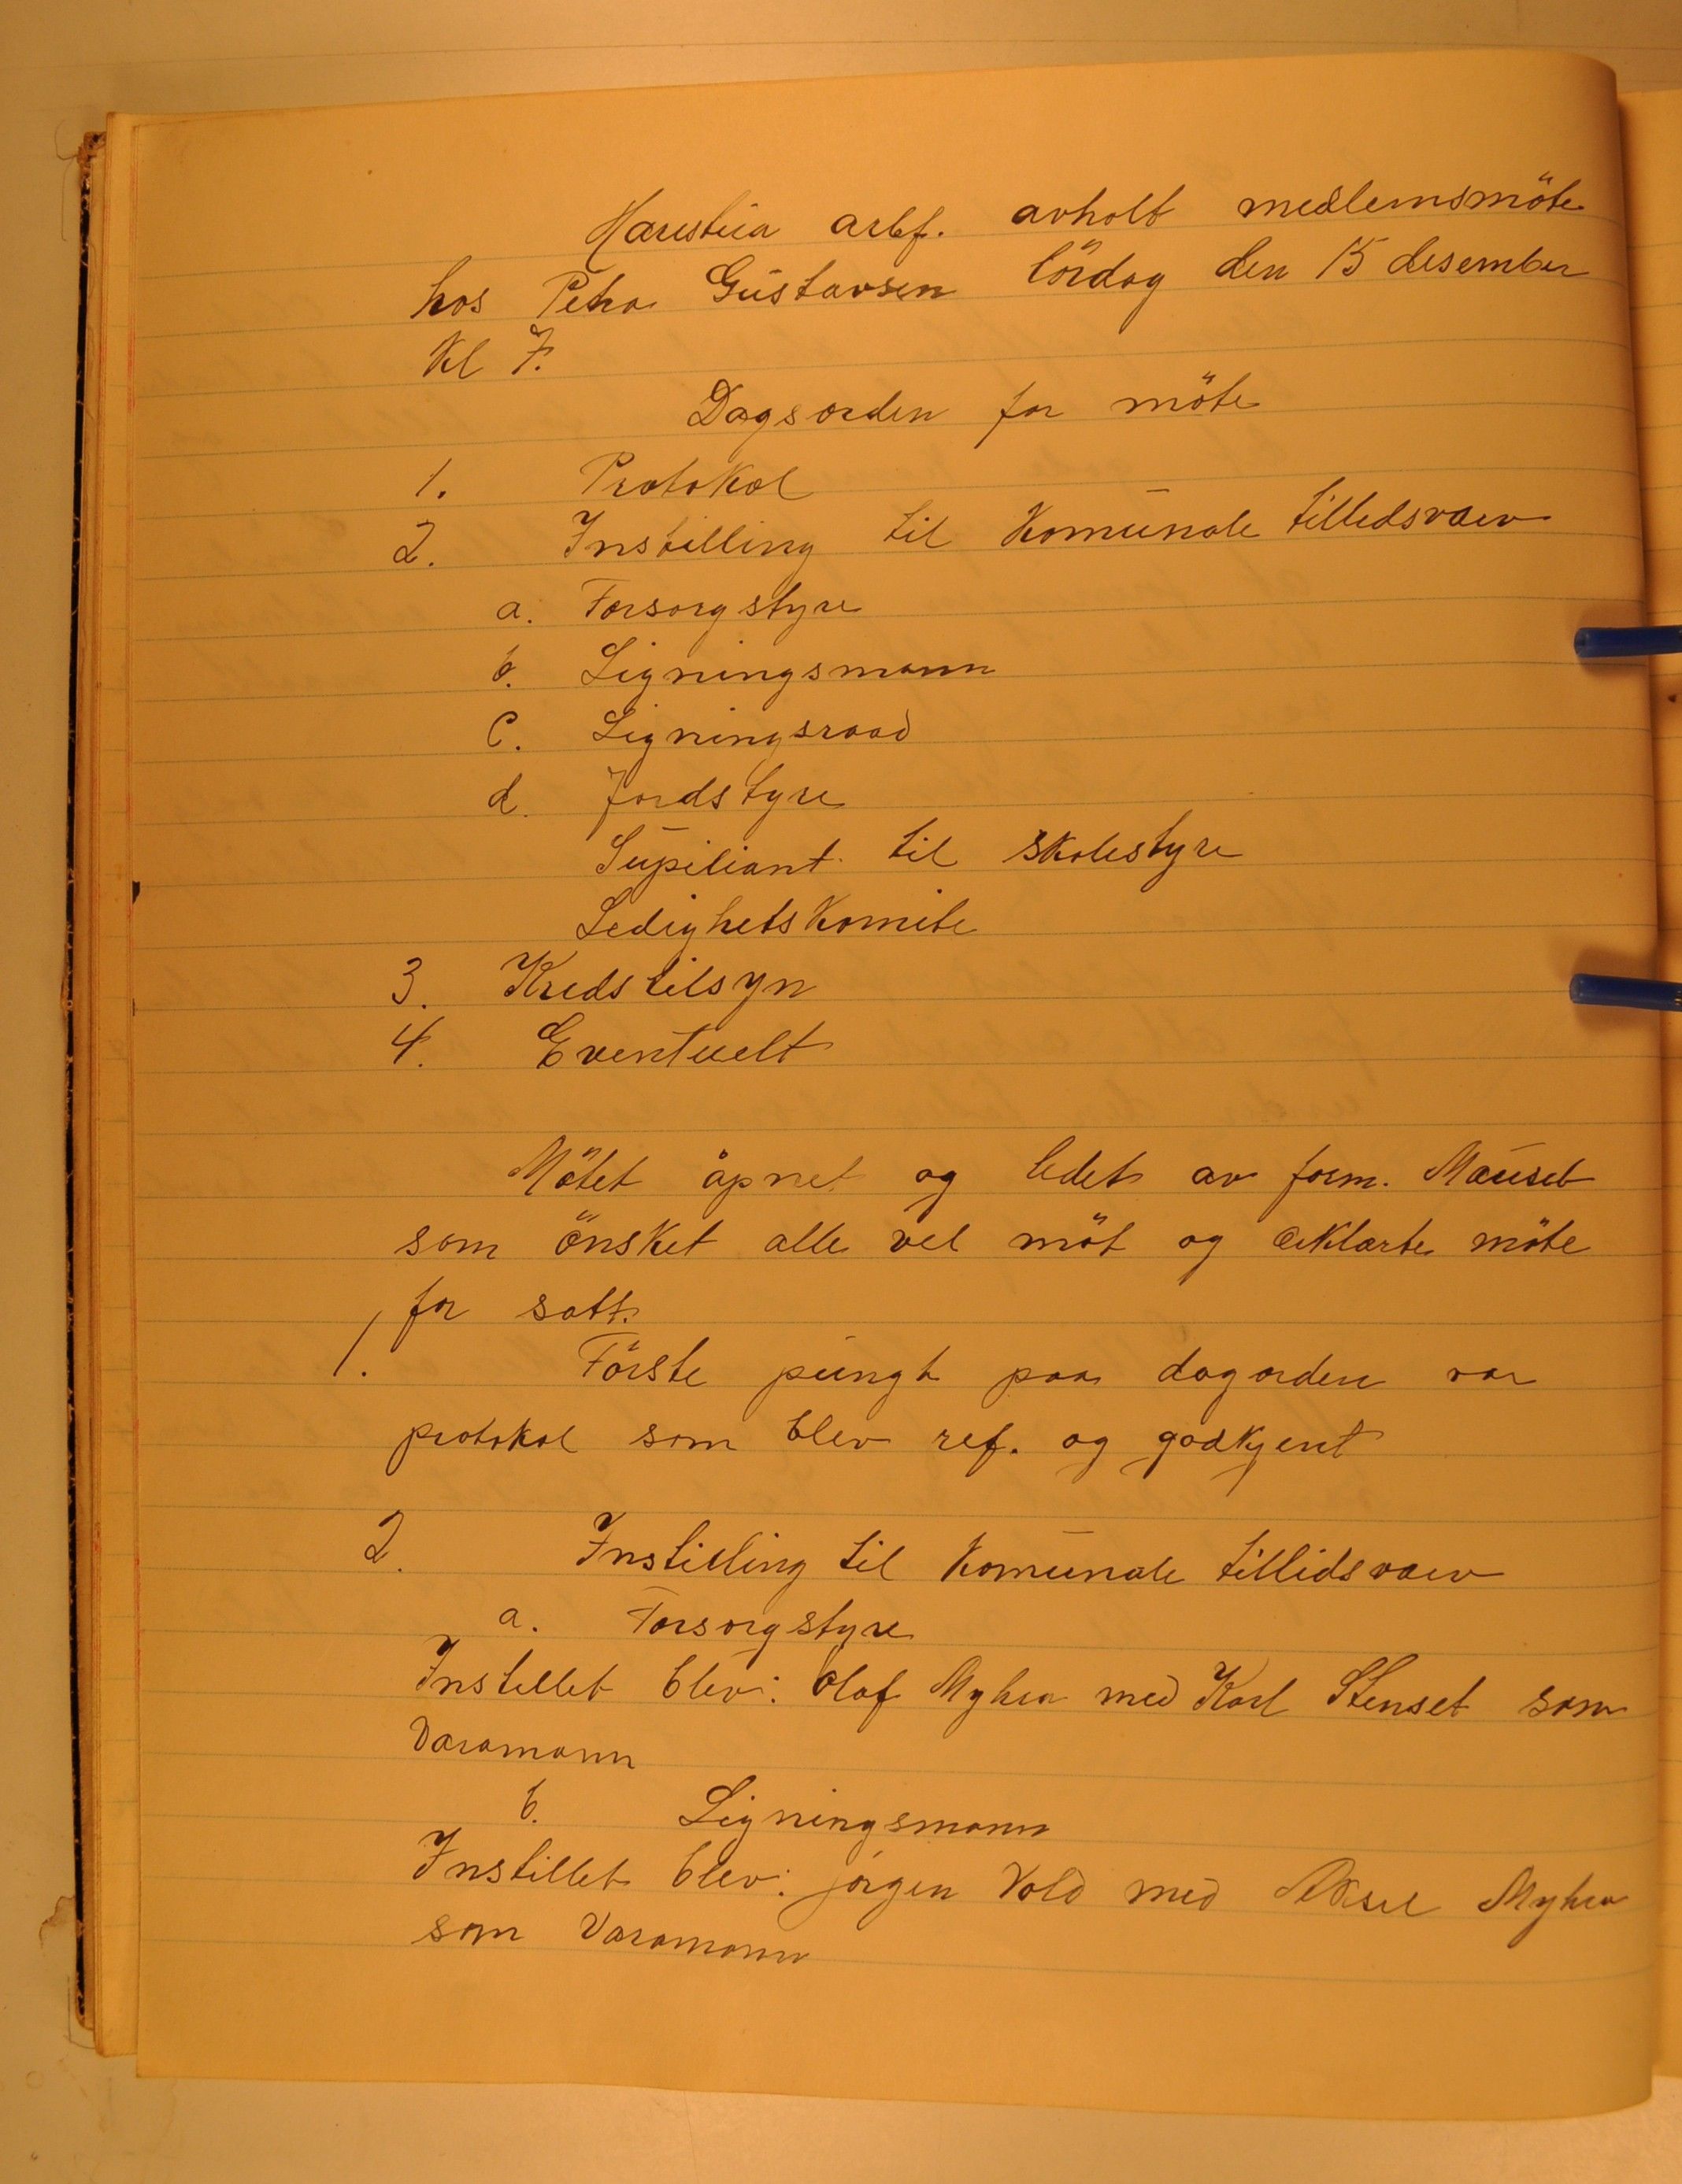 Harestua arbf. avholt medlemsmöte
hos Petra Gustavsen lördag den 15 desember
Kl 7.
Dagsorden for möte
1. Protokol
2. Instilling til Komunale tilledsværv
a. Forsorgstyre
b. Ligningsmann
C. Ligningsraad
d. Jordstyre
Supiliant til skolestyre
Ledighetskomite
3. Kredstilsyn
4. Eventuelt
Mötet åpnet og ledet av form. Mauset
som önsket alle vel möt og erklærte möte
for satt.
1. Förste pungt paa dagorden var
protokol som blev ref. og godkjent
2. Instilling til Komunale tillidsværv
a. Forsorgstyre
Instillet blev: Olaf Myhra med Karl Stenset som
Varamann
b. Ligningsmann
Instillet blev: jörgen Vold med Aksel Myhra
som Varamann